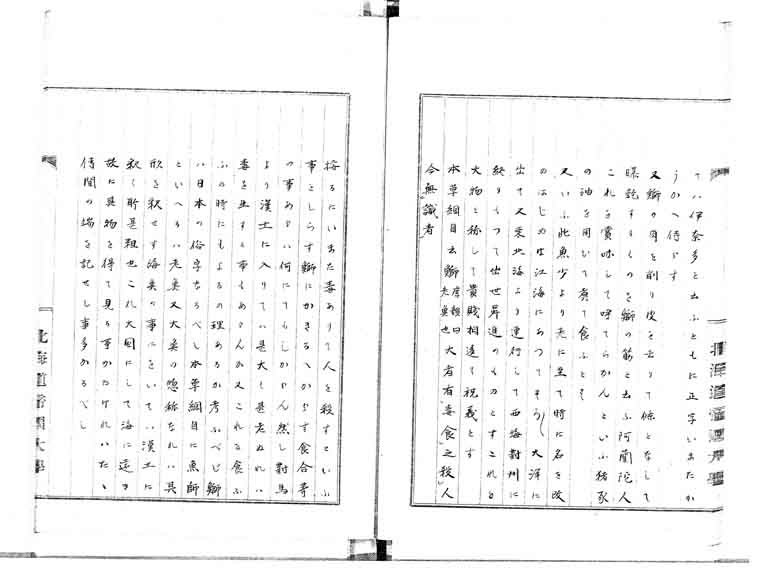 てハ伊奈多と云ふともに正字いまたか
うかへ侍らす
又鰤の肉を削り皮を去りて條となして
曝乾すものを鰤の筋と云ふ阿蘭陀人
これを賞味して呼てらかんといふ猪豕
の油を用ひて煮て食ふとそ
又いふ此魚少より老に至て時に名を改
のはしめは江海にあつて 大洋に
出て又東北海より運行して西海對州に
終りて出世昇進のものとすこれを
大物と称して貴賤相送て祝義とす
本草綱目云鰤 時珍曰 老魚也 大者有毒食之殺人
今無識者
按るにいまた毒ありて人を殺すといふ
事をしらす鰤にかきるへからす食合等
の事あらハ何にてもしからん然し對馬
より漢土に入りてハ是大も是老ぬれハ
毒を生す事もあらんか又これを食ふ
ふの時にもよるの理あるか考ふべし鰤
ハ日本の俗字なるべし本草綱目に魚師
といへるハ老魚又大魚の惣称なれハ其
形を釈せす海魚の事にをいてハ漢土に
釈く所是粗也これ大国にして海に遠き
故に其物を得て見る事かたけれハたゝ
傳聞の端を記せし事多かるべし
北海道